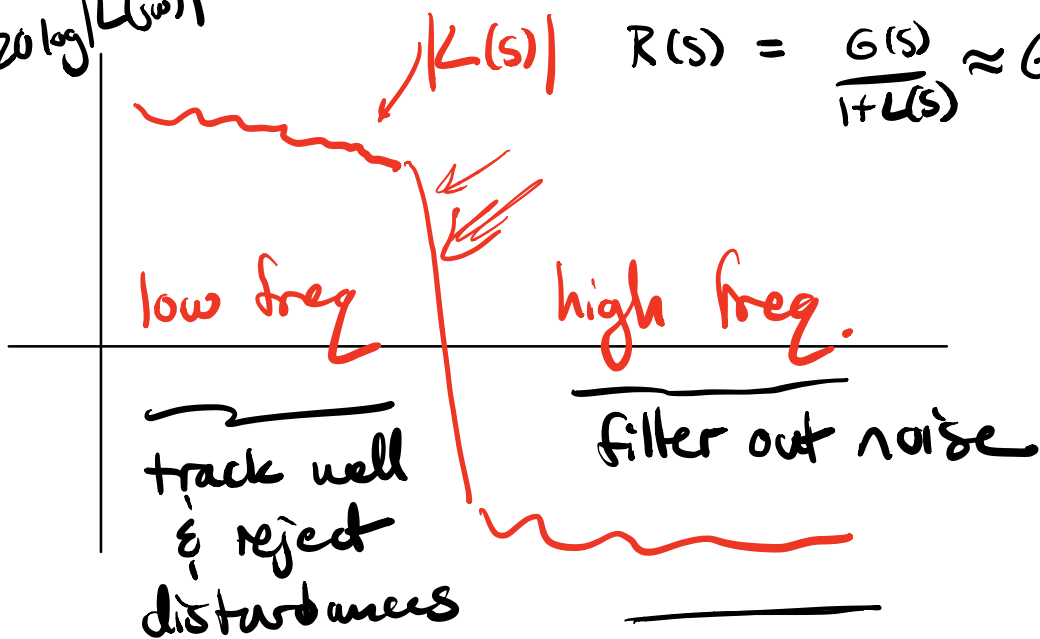 20 log |L(jω)|
|L(s)|
R(s) = G(s) / 1+L(s) ≈ G
low freq
high freq.
track well
& reject
disturbances
filter out noise